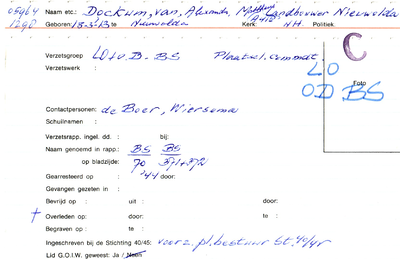 05964 Naam etc.: Dockum, van, Alexander, Matthijs Landbouwer Nieuwolda
1290 Geboren: 18-3-'13 te Nieuwolda Kerk: A410 N.H. Politiek
C
Verzetsgroep LO+O.D. BS Plaatsel. commdt
Verzetswerk LO
Foto
O.D. BS
Contactpersonen: de Boer, Wiersema
Schuilnamen :
Verzetsrapp. ingel. dd. : bij:
Naam genoemd in rapp.: BS BS
op bladzijde: 70 371+372
Gearresteerd op : '44 door:
Gevangen gezeten in :
Bevrijd op : uit : door:
† Overleden op: door: te :
Begraven op : te :
Ingeschreven bij de Stichting 40/45: voorz. pl. bestuur St. 40/45
Lid G.O.I.W. geweest: Ja / Neen